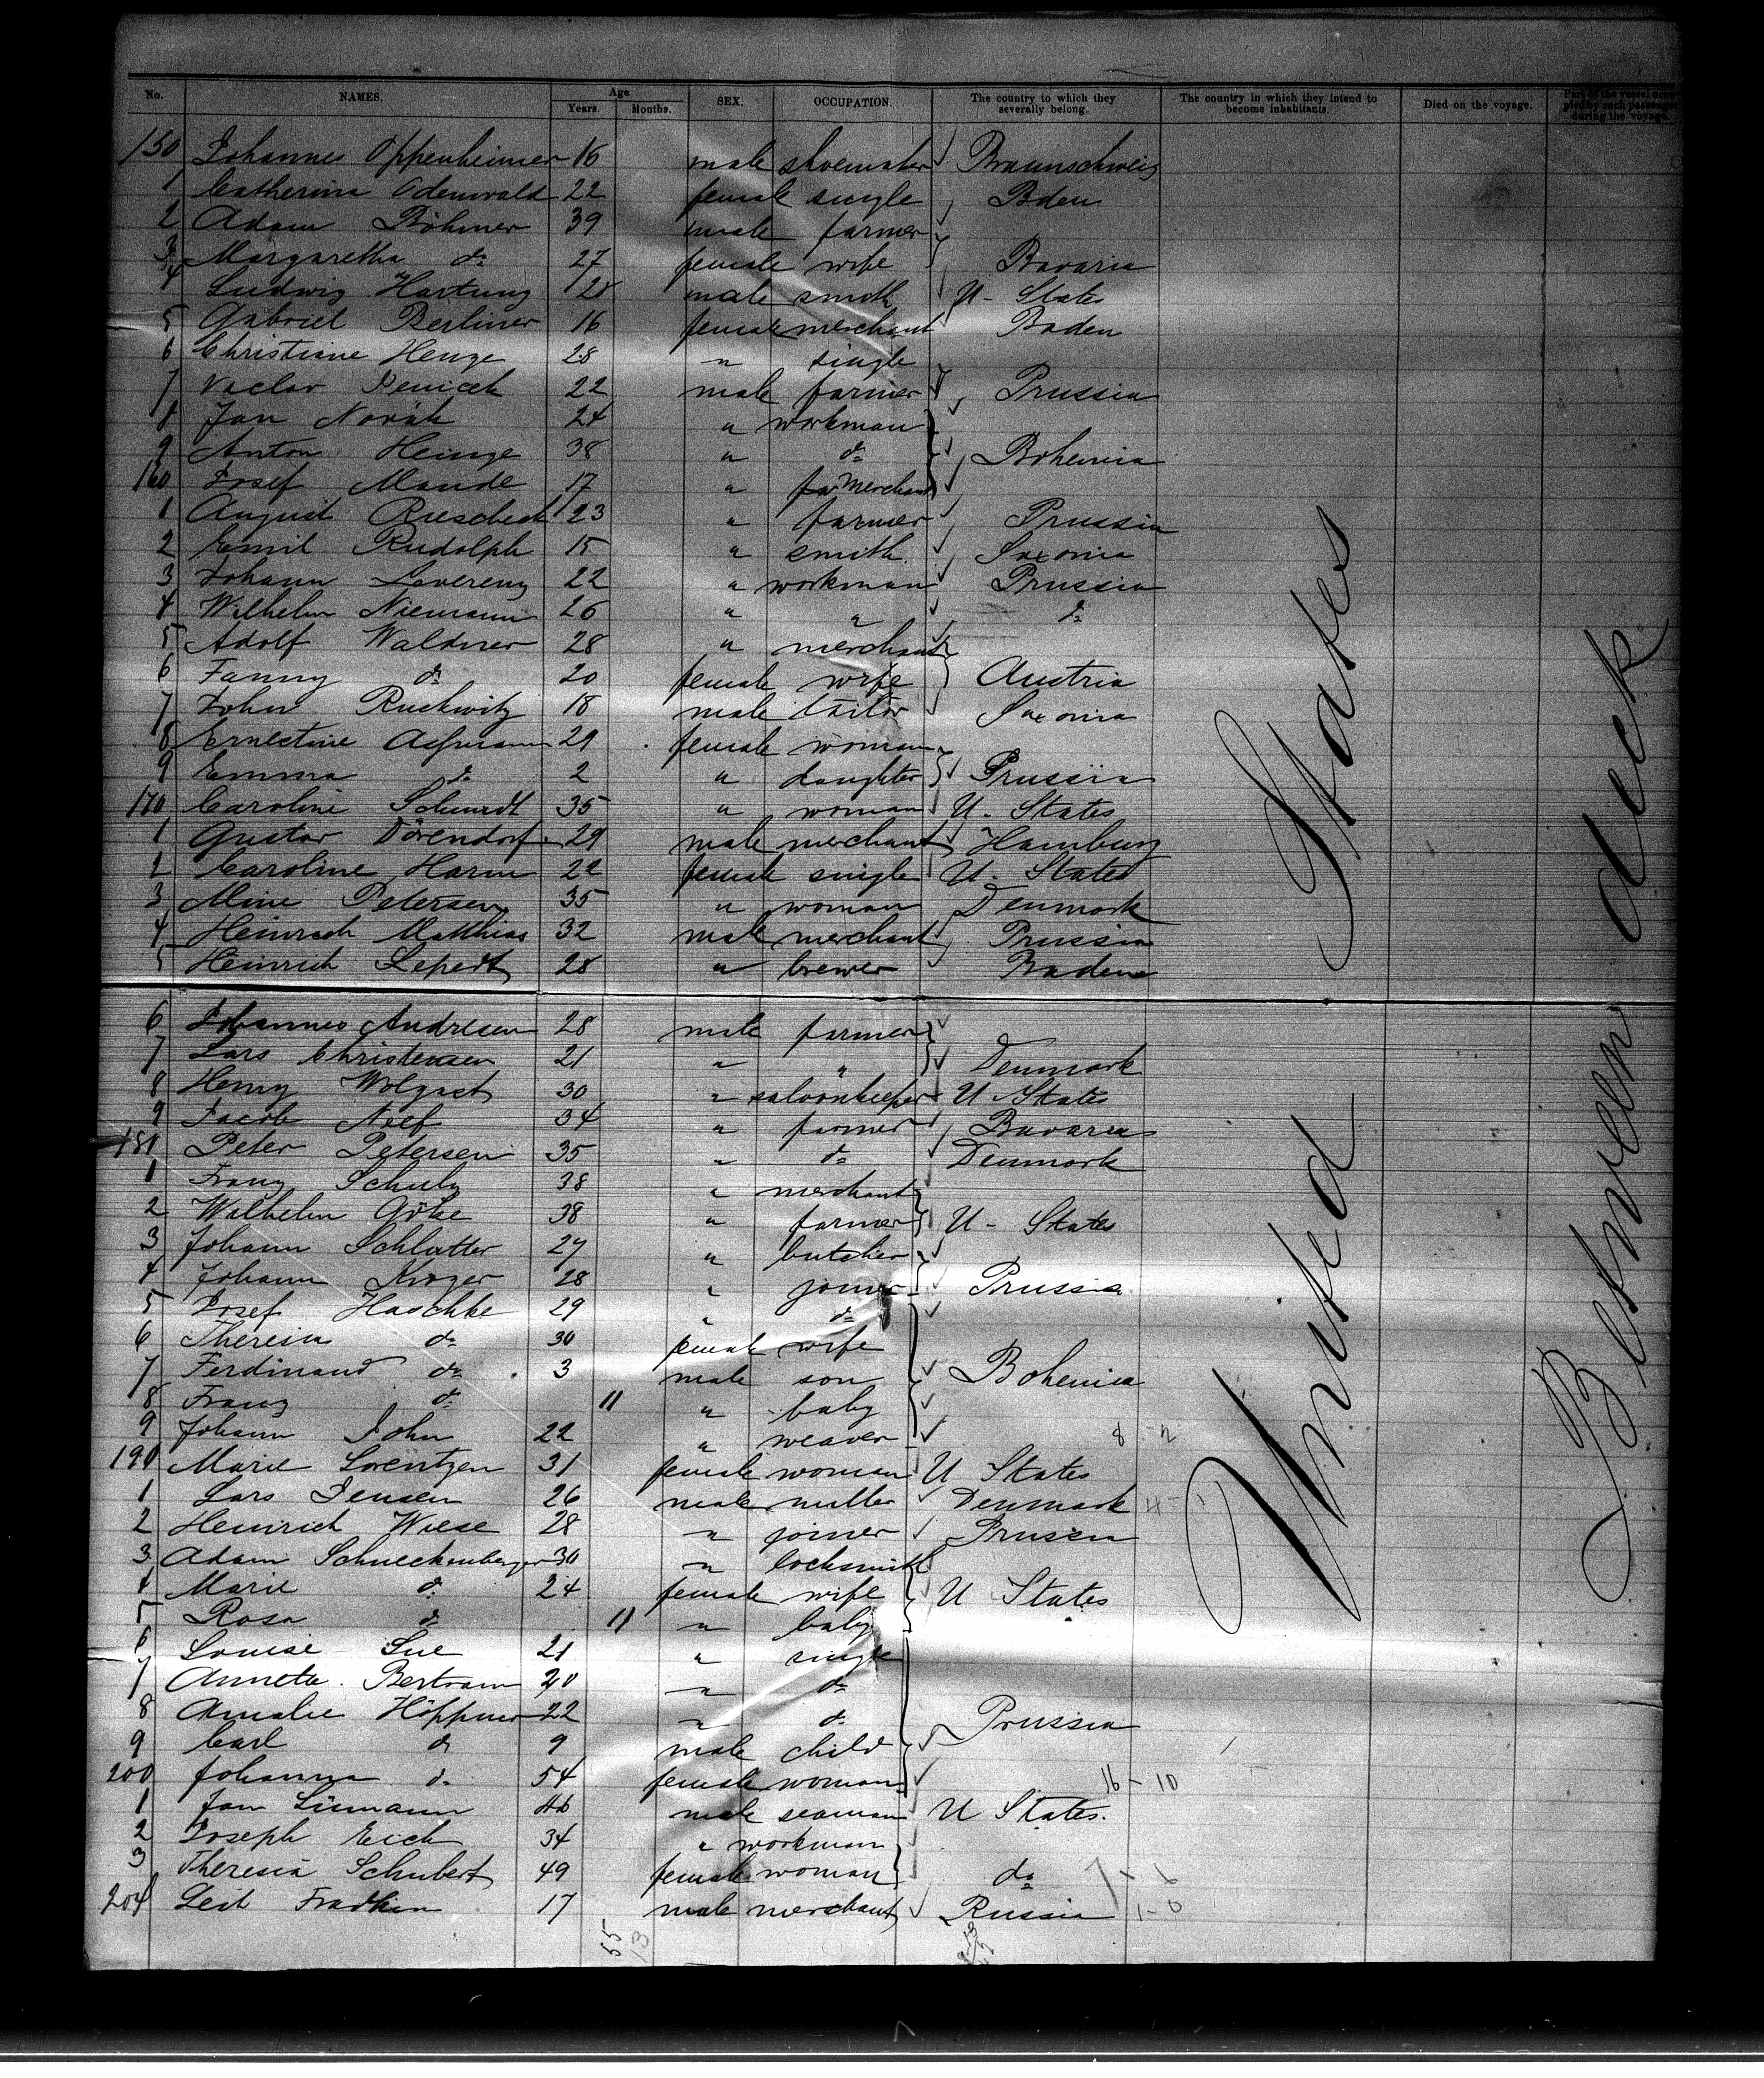 No. NAMES. Age Years. Months. SEX. OCCUPATION. The country to which they severally belong. The country in which they intend to become inhabitants. Died on the voyage. Part of the vessel occupied by each passenger during the voyage.
150 Johannes Oppenheimer 16 male shoemaker Braunschweig
1 Catherina Odenwald 22 female single Bden
2 Adam Böhmer 39 male farmer
3 Margaretha do 27 female wife Bavaria
4 Ludwig Hartung 28 male smith U-States
5 Gabriel Berliner 16 female merchant Baden
6 Christiane Henze 28 " single
7 Vaclav 22 male farmer Prussia
8 Jan Novák 24 " workman
9 Anton Heinze 38 " do Bohemia
160 Josef Mande 17 " merchant
1 August 23 " farmer Prussia
2 Emil Rudolph 15 " smith Saxonia
3 Johann Laverenz 22 " workman Prussia
4 Wilhelm Niemann 26 " " do
5 Adolf Waldner 28 " merchant
6 Fanny do 20 female wife Austria
7 John 18 male tailor Saxonia
8 Ernestine 29 female woman
9 Emma do 2 " daughter Prussia
170 Caroline Schmidt 35 " woman U. States
1 Gustav Dörendorf 29 male merchant Hamburg
2 Caroline Harm 22 female single U. States
3 Mine Petersen 35 " woman Denmark
4 Heinrich Matthias 32 male merchant Prussia
5 Heinrich 28 " brewer Baden
6 Johannes Andresen 28 male farmer
7 Lars Christensen 21 " " Denmark
8 Henry Wolgast 30 " saloonkeeper U States
9 Jacob Neef 34 " farmer Bavaria
181 Peter Petersen 35 " do Denmark
1 Franz Schulz 38 " merchant
2 Wilhelm Göke 38 " farmer U-States
3 Johann Schlatter 27 " butcher
4 Johann Kroger 28 " joiner Prussia
5 Josef Haschke 29 " do
6 Theresia do 30 female wife
7 Ferdinand do 3 male son Bohemia
8 Franz do 11 " baby
9 Johann John 22 " weaver
190 Marie Lorentzen 31 female woman U States
1 Lars Jensen 26 male miller Denmark
2 Heinrich Wiese 28 " joiner Prussia
3 Adam Schneckenberger 30 " locksmith
4 Marie do 24 female wife U States
5 Rosa do 11 " baby
6 Louise Lue 21 " single
7 Annette Bertram 20 " do
8 Amalie Höppner 22 " do Prussia
9 Carl do 9 male child
200 Johanna do 54 female woman 16-10
1 Jan 46 male seaman U States.
2 Joseph Eich 34 " workman
3 Theresia Schubert 49 female woman do
204 Leib Fradkin 17 male merchant Russia 1-0
55
13
United States
Between deck